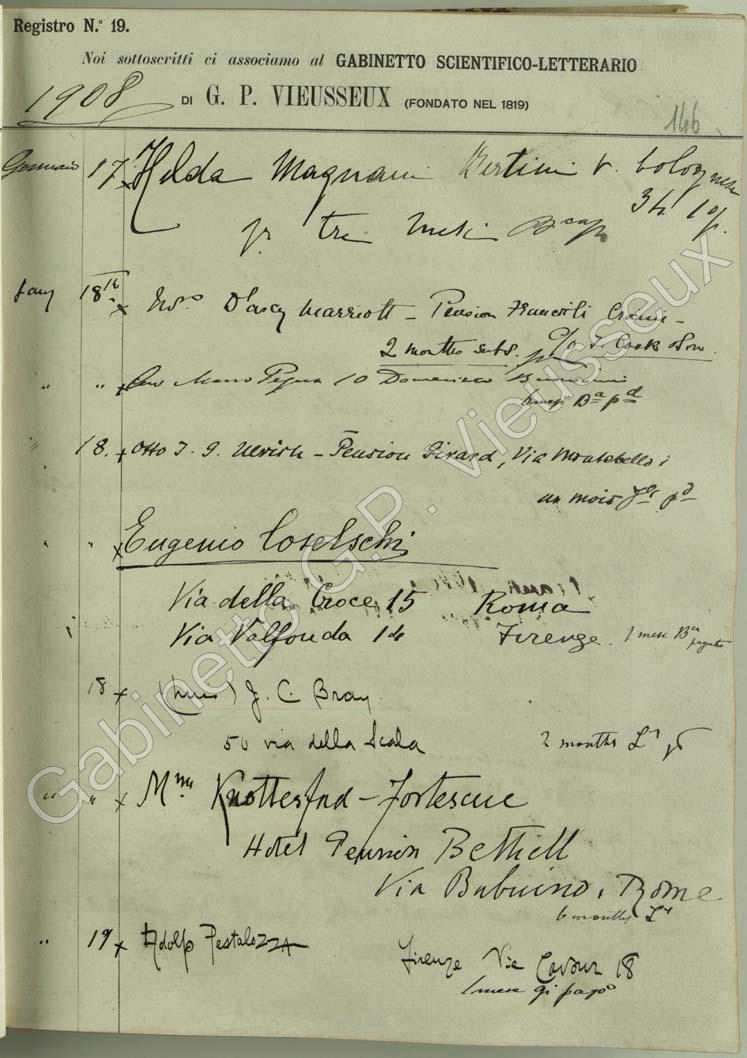 Registro N.º 19.
Noi sottoscritti ci associamo al GABINETTO SCIENTIFICO-LETTERARIO
1908 DI G. P. VIEUSSEUX (FONDATO NEL 1819)
146
Gennaio 17 x Hilda Magnani Bertini v. bolognese
34
pr tre mesi
Jany 18th x D'arcy Marriott - Pension
2 months subs. c/o T. Cook & Son.
" " x 10 Domenico
pd
" 18. x Otto J. G. Ulrich - Pension Girard, Via Montebello 1
un mois pd
" " x Eugenio Coselschi
Via della Croce 15 Roma
Via Valfonda 14 Firenze. 1 mese pagato
18 x (Miss) J. C. Bray
50 via della Scala 2 months
" " x Mme Knottesford-Fortescue
Hotel Pension Bethell
Via Babuino, Rome
6 months
" 19 x Adolfo Pestalozza
Firenze Via Cavour 18
1 mese gi pagò
Gabinetto G.P. Vieusseux